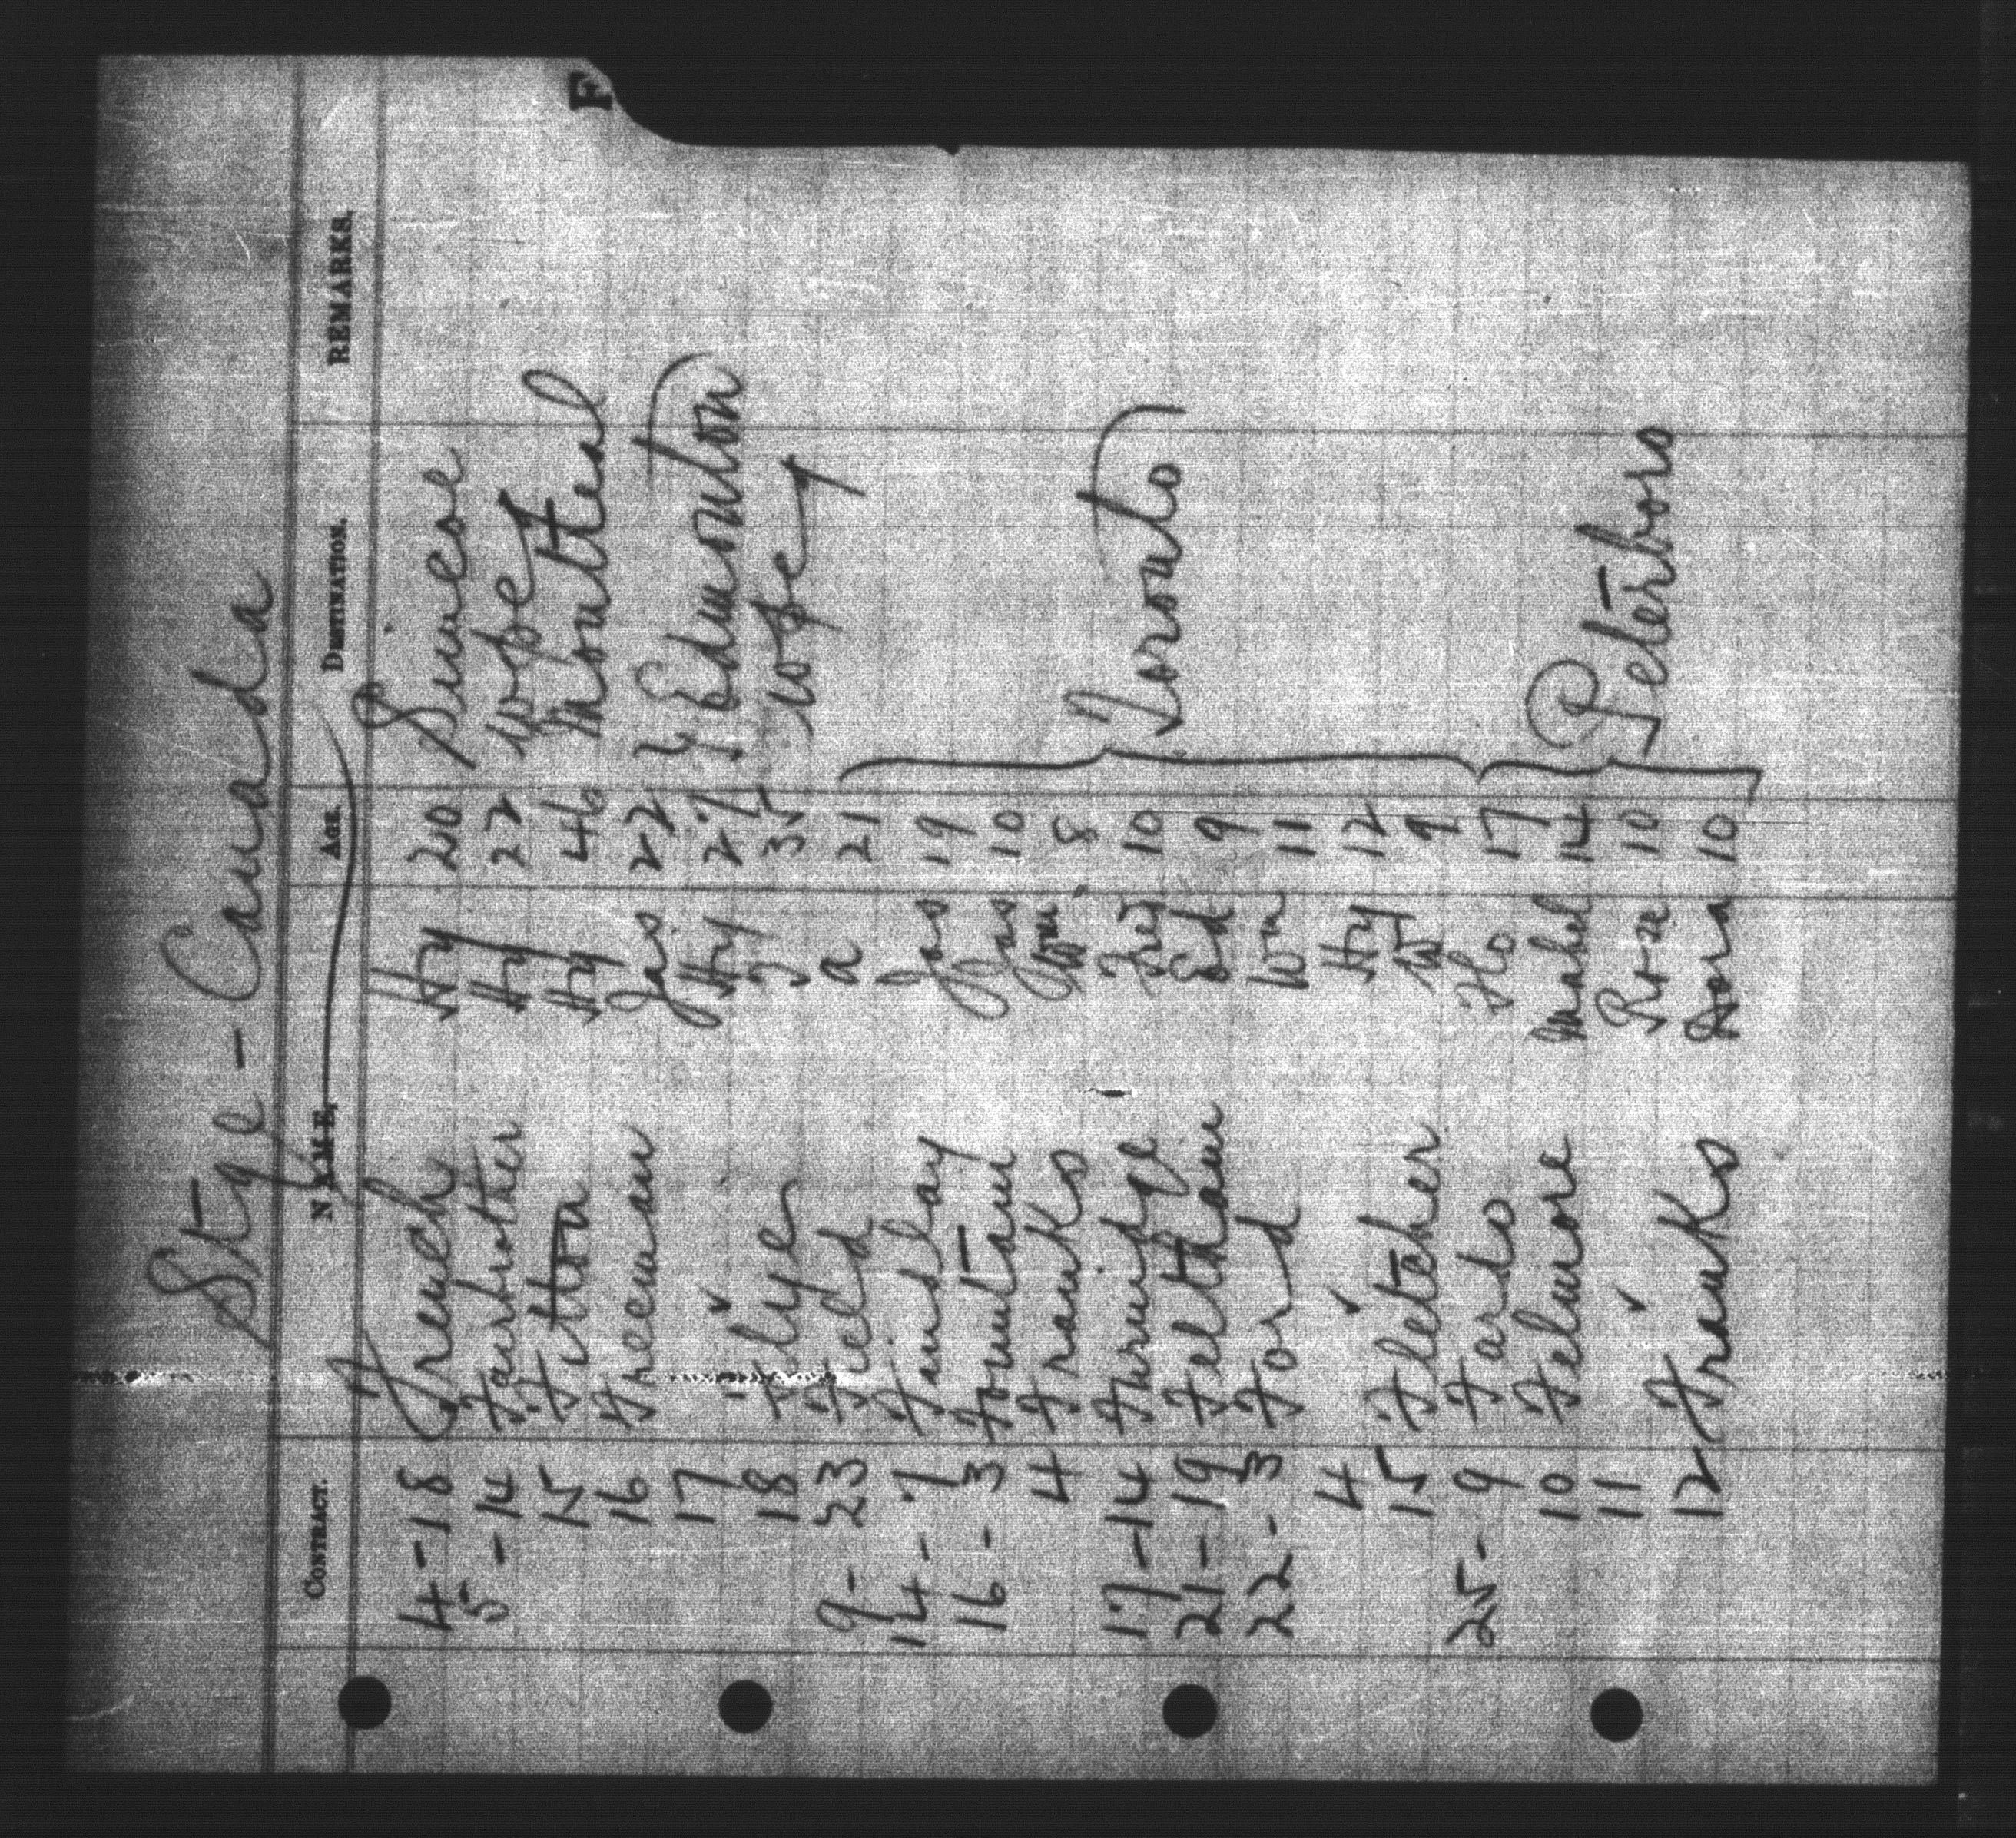 F
Stge - Canada
CONTRACT. NAME. AGE. DESTINATION. REMARKS.
4-18 French Hy 20 Simcoe
5-14 Fairbrother Hy 22 Wpg
15 Fitton Hy 46 Montreal
16 Freeman Jas 22 } Edmonton
17 ✓ Hy 27
18 Flye J 35 Wpg
9-23 Field a 21
14-7 Findlay Jas 19
16-3 Fountain Jas 10
4 Franks Wm 8
17-14 Furnidge Fred 10 Toronto
21-19 Feltham Ed 9
22-3 Ford Wm 11
4 ✓ Hy 12
15 Fletcher W 9
25-9 Fardo Flo 17
10 Felmore Mabel 14 Peterboro
11 ✓ Rose 10
12 Franks Dora 10